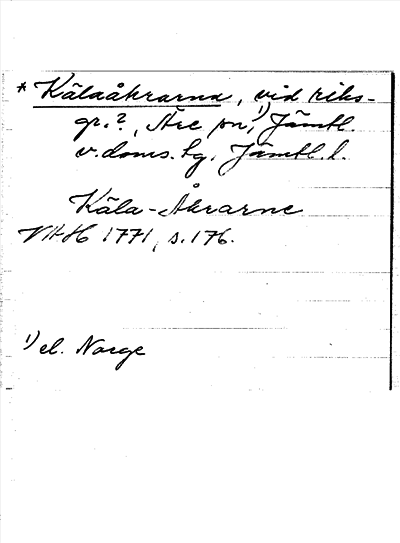 * Kälaåkrarna, vid riks-
gr.?, Åre sn,¹) Jämtl.
v. doms. tg, Jämtl. l.
Käla-Åkrarne
VAH 1771, s. 176.
¹) el. Norge